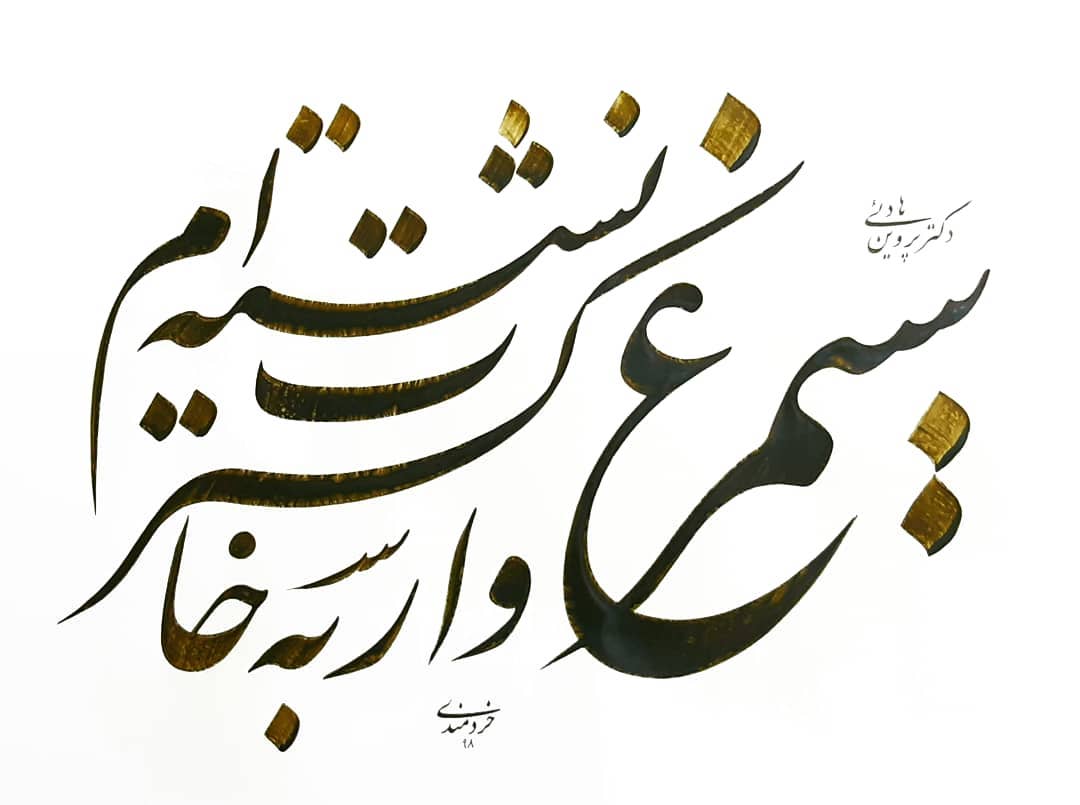 سیمرغ وار به خاکستر نشسته ام
دکتر پروین هادئی
خردمندی
۹۸